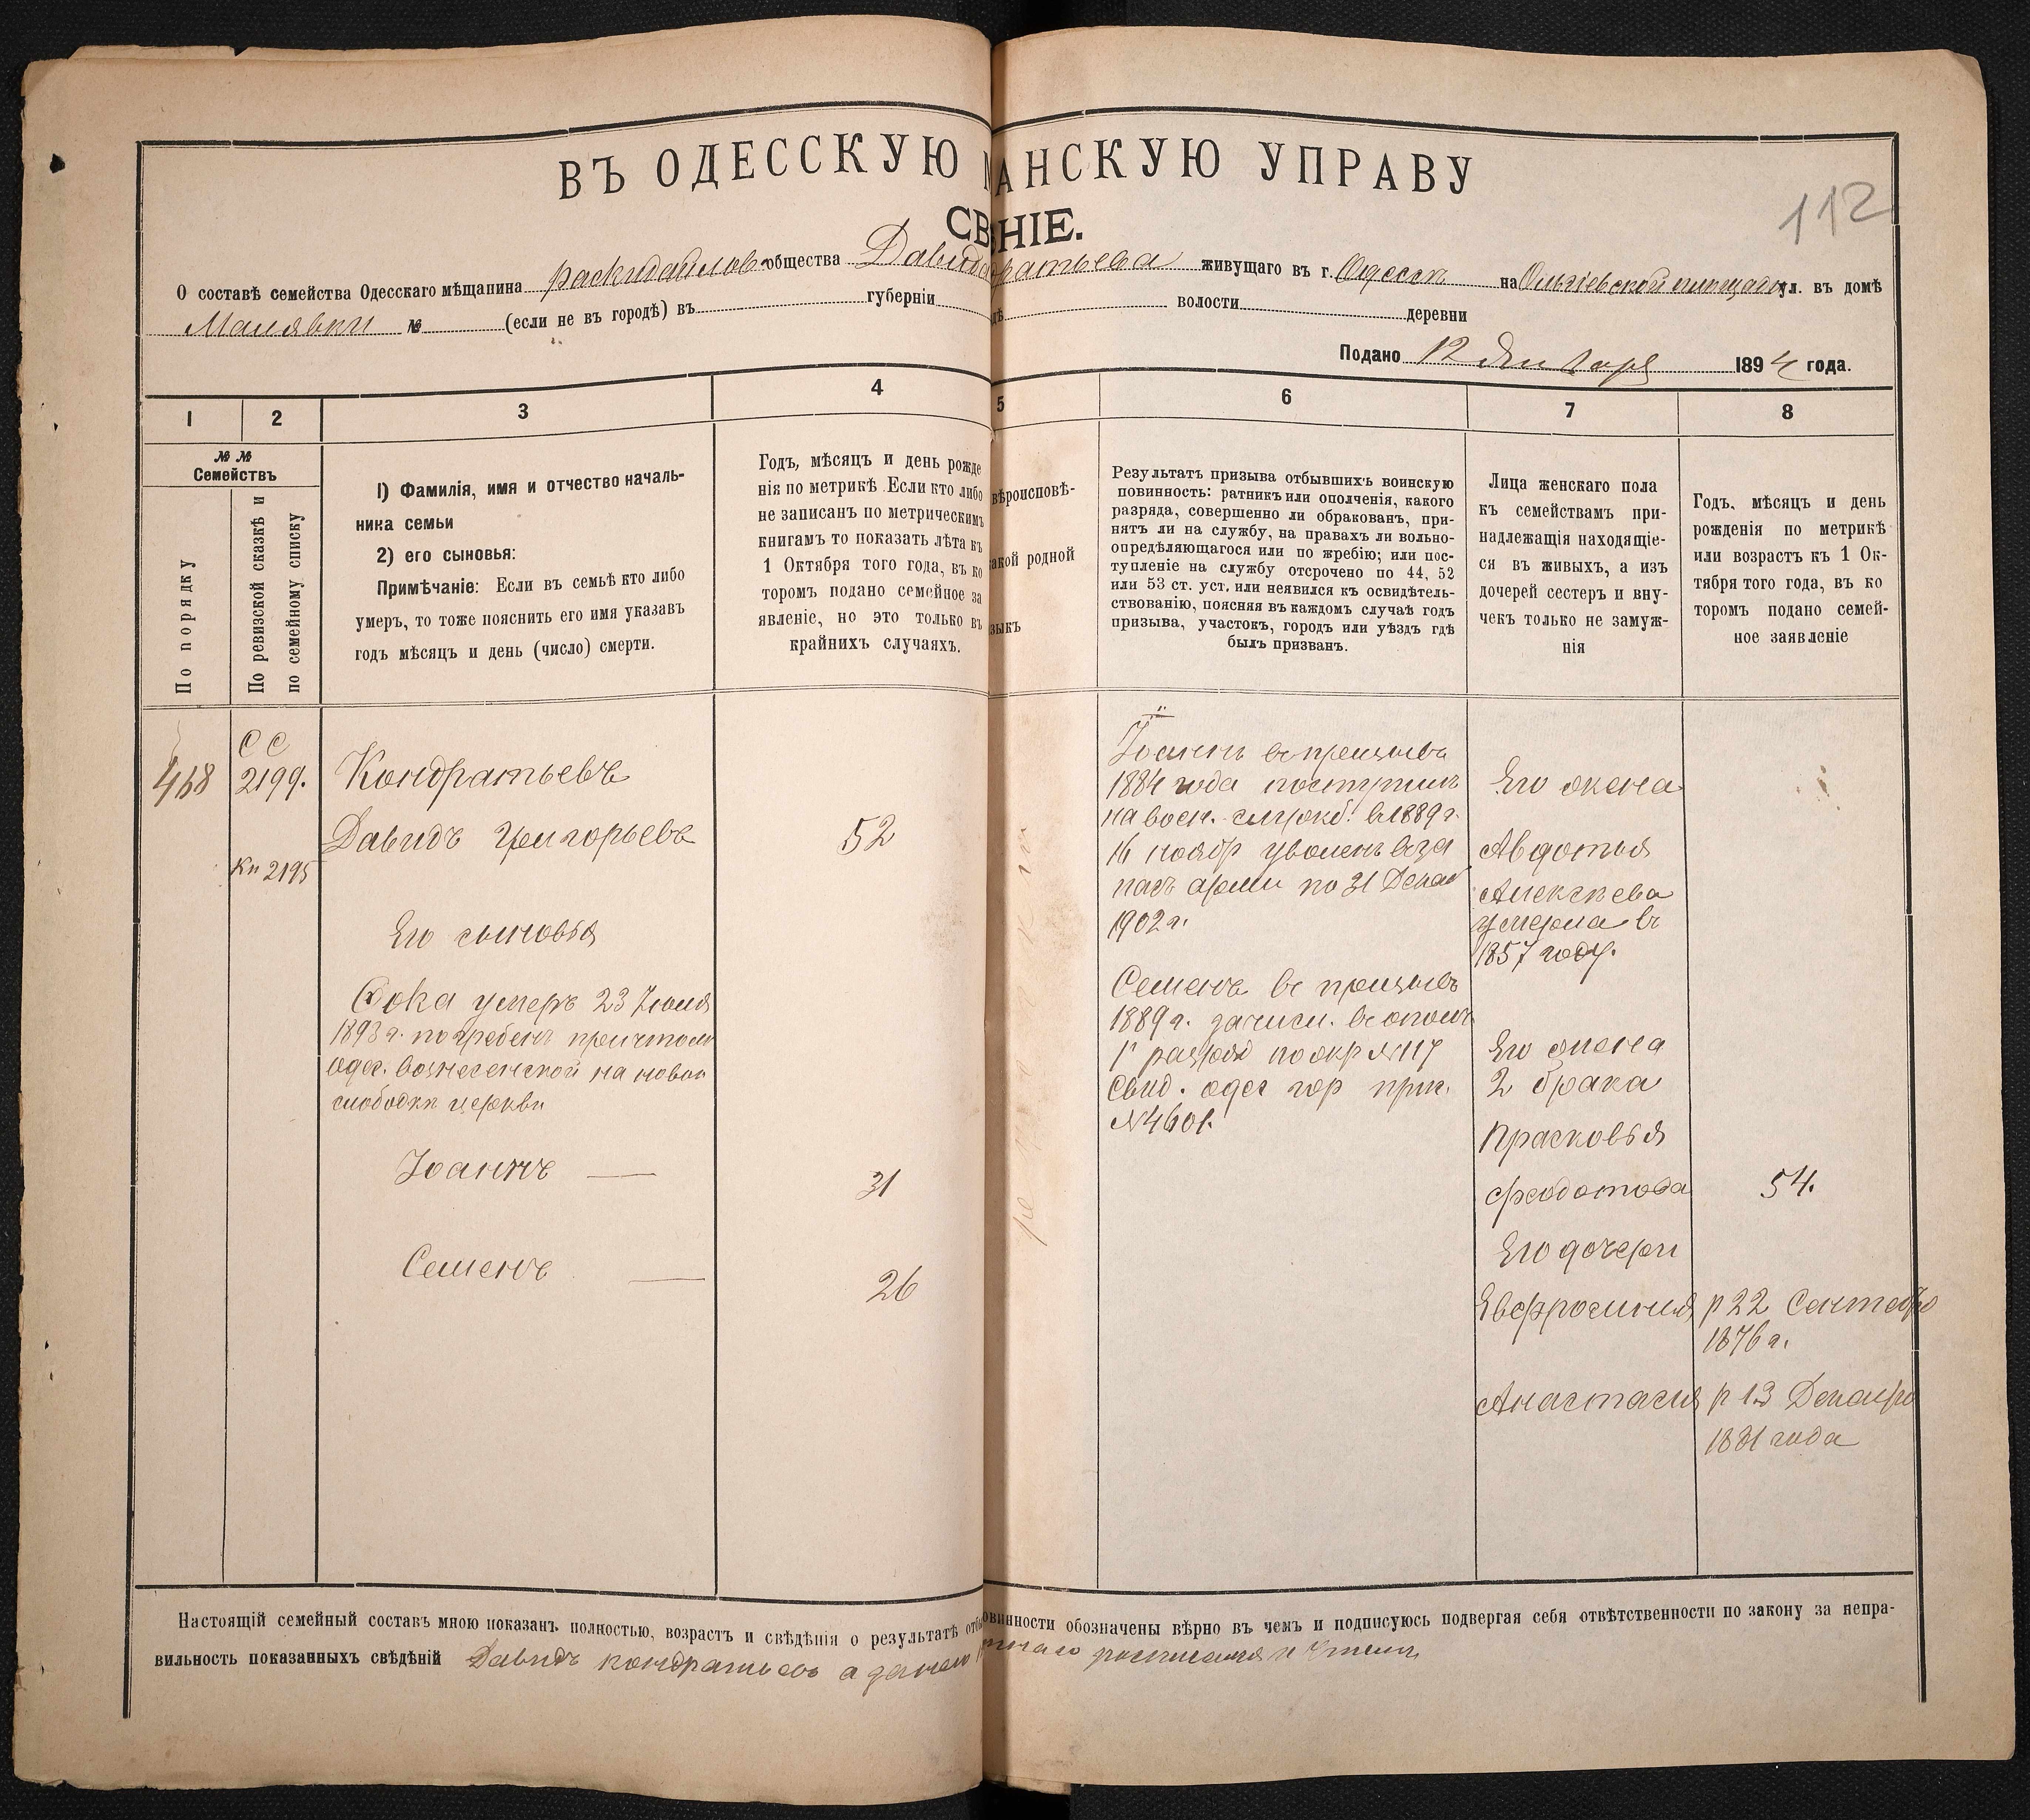 ВЪ ОДЕССКУЮ АНСКУЮ УПРАВУ
112
СВ НІЕ.
О составѣ семейства Одесскаго мѣщанина общества Давида ратьева живущаго въ г. Одессѣ на Ольгіевской площади ул. въ домѣ
Малявки № (если не въ городѣ) въ губерніи дѣ волости деревни
Подано 12 Января 1894 года.
1 2 3 4 5 6 7 8
№ №
Семействъ
По порядку
По ревизской сказкѣ и
по семейному списку
1) Фамилія, имя и отчество началь-
ника семьи
2) его сыновья:
Примѣчаніе: Если въ семьѣ кто либо
умеръ, то тоже пояснить его имя указавъ
годъ мѣсяцъ и день (число) смерти.
Годъ, мѣсяцъ и день рожде
нія по метрикѣ. Если кто либо
не записанъ по метрическимъ
книгамъ то показать лѣта къ
1 Октября того года, въ ко
торомъ подано семейное за
явленіе, но это только въ
крайнихъ случаяхъ.
вѣроисповѣ-
акой родной
зыкъ
Результатъ призыва отбывшихъ воинскую
повинность: ратникъ или ополченія, какого
разряда, совершенно ли обракованъ, при-
нятъ ли на службу, на правахъ ли вольно-
опредѣляющагося или по жребію; или пос-
тупленіе на службу отсрочено по 44, 52
или 53 ст. уст. или неявился къ освидѣтель-
ствованію, поясняя въ каждомъ случаѣ годъ
призыва, участокъ, городъ или уѣздъ гдѣ
былъ призванъ.
Лица женскаго пола
къ семействамъ при-
надлежащія находящіе-
ся въ живыхъ, а изъ
дочерей сестеръ и вну-
чекъ только не замуж-
нія
Годъ, мѣсяцъ и день
рожденія по метрикѣ
или возрастъ къ 1 Ок-
тября того года, въ ко
торомъ подано семей-
ное заявленіе
468
СС
2199.
Кп 2195
Кондратьевъ
Давидъ Григорьевъ
Его сыновья
Фока умеръ 23 Іюля
1893 г. погребенъ причтомъ
одес. вознесенской на новой
слободкѣ церкви
Іоаннъ —
Семенъ —
52
31
26
Іоаннъ въ призывъ
1884 года поступилъ
на воен. служб. в 1889 г.
16 нояб уволенъ в за
пасъ арміи по 31 Декаб
1902 г.
Семенъ въ призывъ
1889 г. зачисл. въ ополч
1 разряда по жр №117
свид. одес гор прис.
№4601.
Его жена
Авдотья
Алексѣева
умерла въ
1857 году.
Его жена
2 брака
Прасковья
Феодотова
Его дочери
Евфросинія
Анастасія
54.
р 22 Сентября
1876 г.
р 13 Декабря
1881 года
Настоящій семейный составъ мною показанъ полностью, возрастъ и свѣдѣнія о результатѣ отб овинности обозначены вѣрно въ чемъ и подписуюсь подвергая себя отвѣтственности по закону за непра-
вильность показанныхъ свѣдѣній Давидъ Кондратьевъ а за него